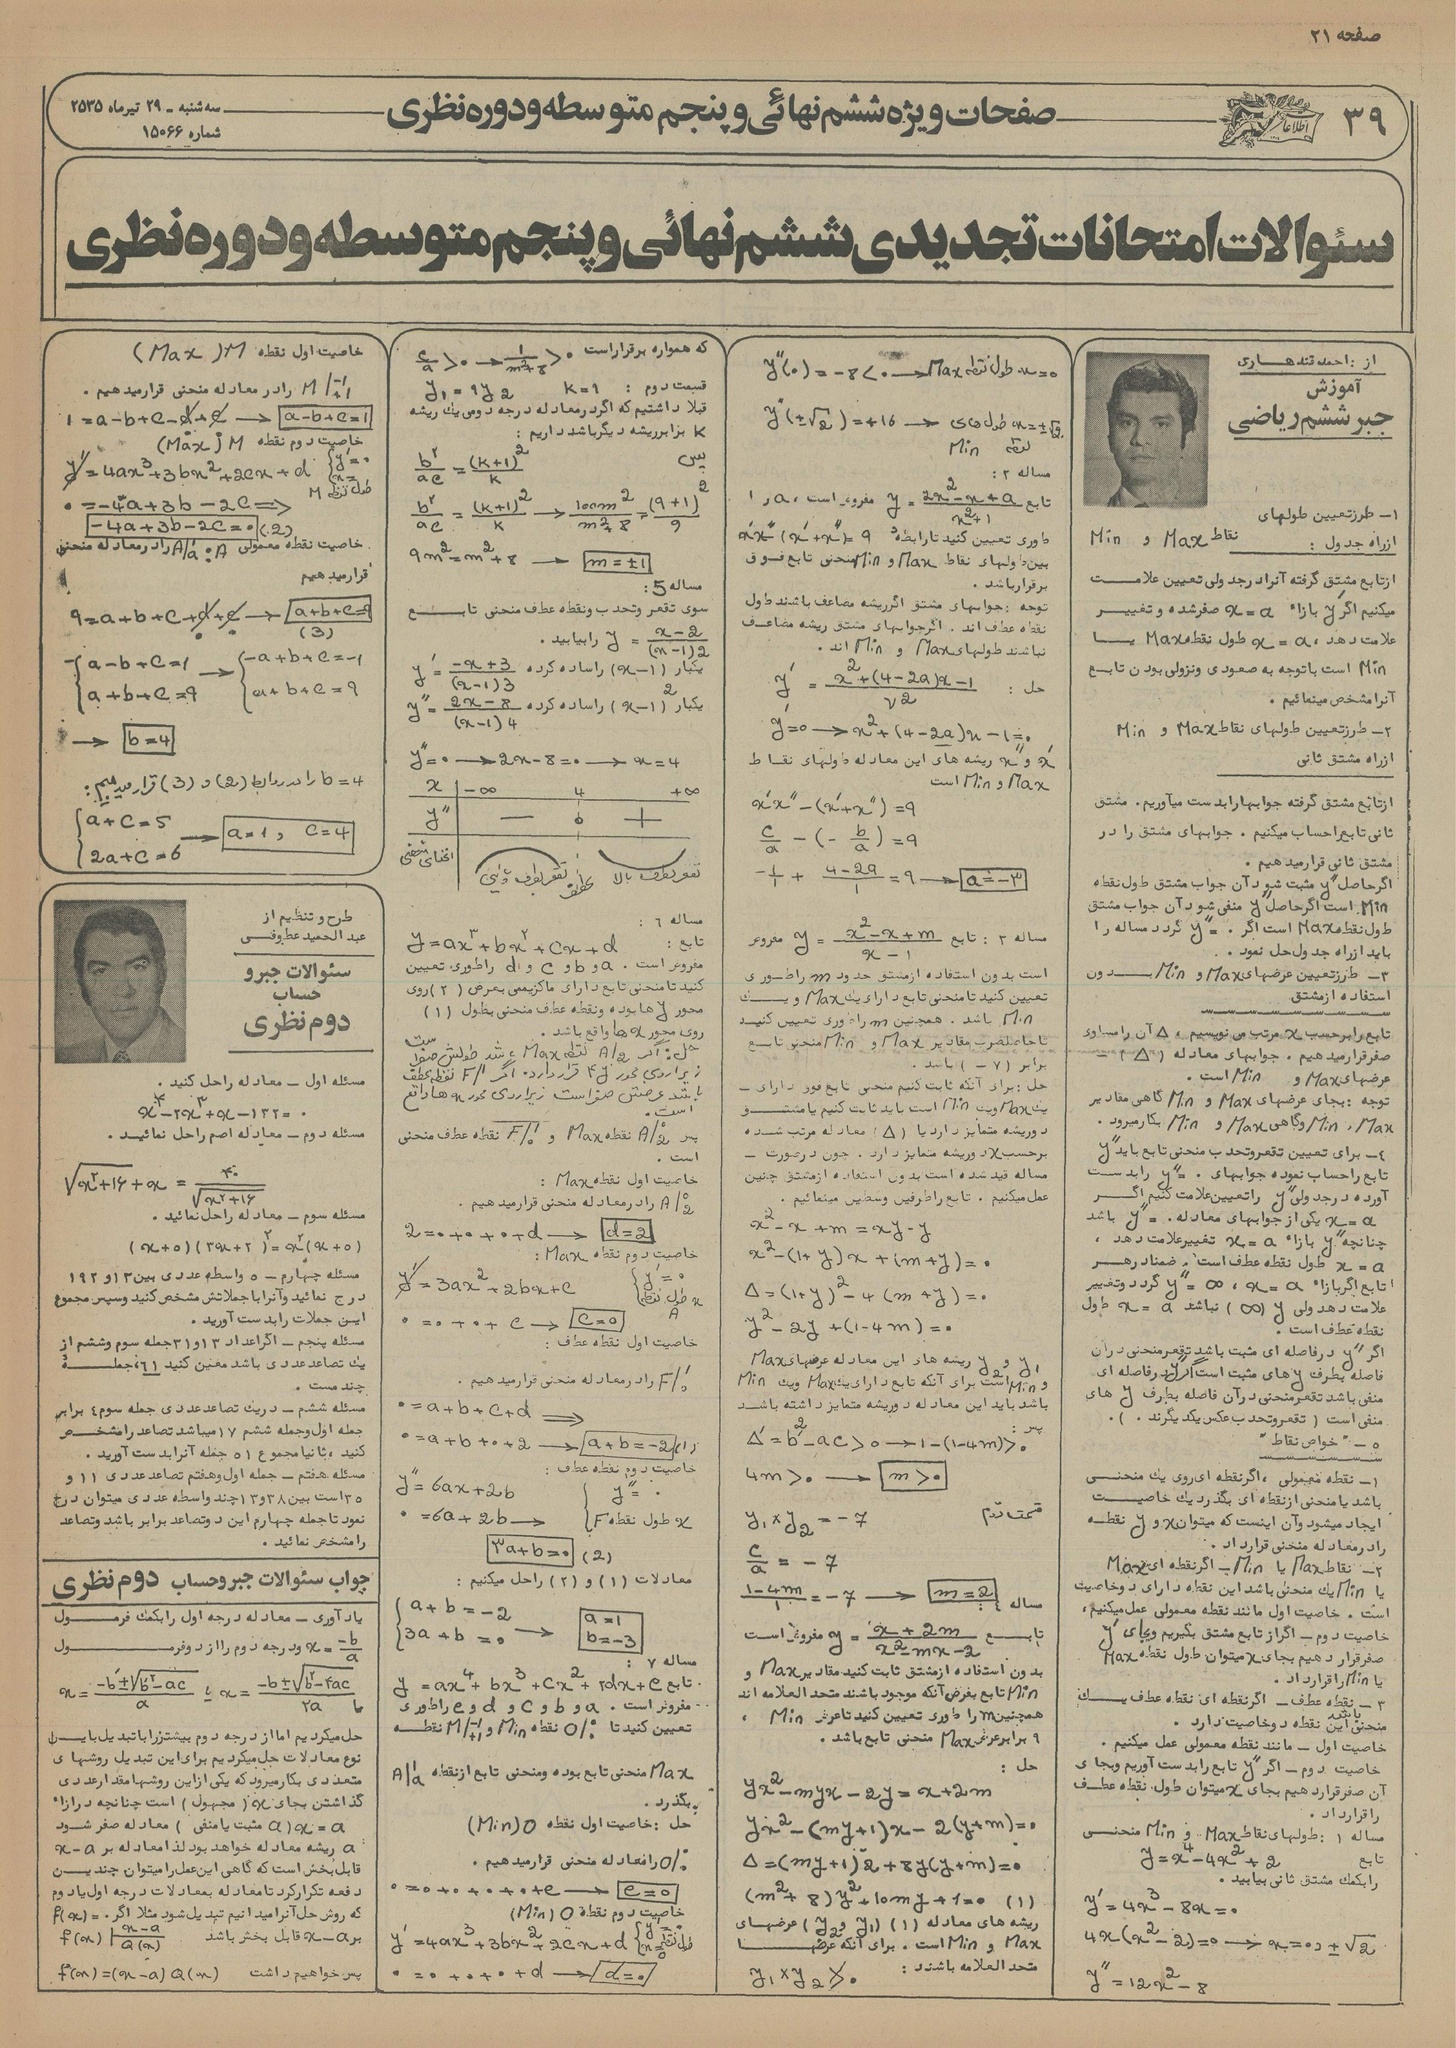 صفحه ۲۱
۳۹
اطلاعات
صفحات ویژه ششم نهائی و پنجم متوسطه و دوره نظری
سه شنبه - ۲۹ تیر ماه ۲۵۳۵
شماره ۱۵۰۶۶
سئوالات امتحانات تجدیدی ششم نهائی و پنجم متوسطه و دوره نظری
از : احمد قندهاری
آموزش
جبر ششم ریاضی
۱- طرز تعیین طولهای
نقاط Max و Min
از راه جدول :
از تابع مشتق گرفته آنرا در جدولی تعیین علامت
میکنیم اگر y′ بازاء x = a صفر شده و تغییر
علامت دهد ، x = a طول نقطه Max یا
Min است با توجه به صعودی و نزولی بودن تابع
آنرا مشخص مینمائیم .
۲- طرز تعیین طولهای نقاط Max و Min
از راه مشتق ثانی
از تابع مشتق گرفته جوابها را بدست میآوریم . مشتق
ثانی تابع را حساب میکنیم . جوابهای مشتق را در
مشتق ثانی قرار میدهیم .
اگر حاصل y″ مثبت شود آن جواب مشتق طول نقطه
Min است اگر حاصل y″ منفی شود آن جواب مشتق
طول نقطه Max است اگر ۰ = y″ گردد مساله را
باید از راه جدول حل نمود .
۳- طرز تعیین عرضهای Max و Min بدون
استفاده از مشتق
تابع را بر حسب x مرتب می نویسیم ، Δ آن را مساوی
صفر قرار میدهیم . جوابهای معادله ( Δ ) -
عرضهای Max و Min است .
توجه : بجای عرضهای Max و Min گاهی مقادیر
Max ، Min و گاهی Max و Min بکار میرود .
۴- برای تعیین تقعر و تحدب منحنی تابع باید y″
تابع را حساب نموده جوابهای ۰ = y″ را بدست
آورده در جدولی y″ را تعیین علامت کنیم اگر
x = a یکی از جوابهای معادله ۰ = y″ باشد
چنانچه y″ بازاء x = a تغییر علامت دهد ،
x = a طول نقطه عطف است . ضمنا در هر
تابع اگر بازاء x = a ، y″ = ∞ گردد و تغییر
علامت دهد ولی y (∞) نباشد x = a طول
نقطه عطف است .
اگر y″ در فاصله ای مثبت باشد تقعر منحنی در آن
فاصله بطرف y های مثبت است اگر y″ در فاصله ای
منفی باشد تقعر منحنی در آن فاصله بطرف y های
منفی است ( تقعر و تحدب عکس یکدیگرند . ) .
۵- " خواص نقاط "
۱- نقطه معمولی ، اگر نقطه ای روی یك منحنی
باشد یا منحنی از نقطه ای بگذرد یك خاصیت
ایجاد میشود و آن اینست که میتوان x و y نقطه
را در معادله منحنی قرار داد .
۲- نقاط Max یا Min - اگر نقطه ای Max
یا Min یك منحنی باشد این نقطه دارای دو خاصیت
است . خاصیت اول مانند نقطه معمولی عمل میکنیم ،
خاصیت دوم - اگر از تابع مشتق بگیریم و بجای y′
صفر قرار دهیم بجای x میتوان طول نقطه Max
یا Min را قرار داد .
۳- نقطه عطف - اگر نقطه ای نقطه عطف یك
منحنی باشد این نقطه دو خاصیت دارد .
خاصیت اول - مانند نقطه معمولی عمل میکنیم .
خاصیت دوم - اگر y″ تابع را بدست آوریم و بجای
آن صفر قرار دهیم بجای x میتوان طول نقطه عطف
را قرار داد .
مساله ۱ : طولهای نقاط Max و Min منحنی
تابع y = x⁴ - 4x² + 2
را بکمك مشتق ثانی بیابید .
y′ = 4x³ - 8x = ۰
4x(x² - 2) = ۰ → x = ۰ , ±√2
y″ = 12x² - 8
y″(۰) = -8 < ۰ → Max طول نقطه x = ۰
y″(±√2) = +16 → x = ±√2 طول های
نقطه Min
مساله ۲ :
تابع y = (2x² - x + a)/(x² + 1) مفروض است ، a را
طوری تعیین کنید تا رابطه x′x″ - (x′ + x″) = ۹
بین طولهای نقاط Max و Min منحنی تابع فوق
برقرار باشد .
توجه : جوابهای مشتق اگر ریشه مضاعف باشند طول
نقطه عطف اند . اگر جوابهای مشتق ریشه مضاعف
نباشند طولهای Max و Min اند .
حل : y′ = (x² + (4 - 2a)x - 1)/v²
y′ = ۰ → x² + (4 - 2a)x - 1 = ۰
x′ و x″ ریشه های این معادله طولهای نقاط
Max و Min است
x′x″ - (x′ + x″) = ۹
c/a - (- b/a) = ۹
-1/1 + (4 - 2a)/1 = ۹ → a = -۳
مساله ۳ : تابع y = (x² - x + m)/(x - 1) مفروض
است بدون استفاده از مشتق حدود m را طوری
تعیین کنید تا منحنی تابع دارای یك Max و یك
Min باشد . همچنین m را طوری تعیین کنید
تا حاصلضرب مقادیر Max و Min منحنی تابع
برابر ( ۷ - ) باشد .
حل : برای آنکه ثابت کنیم منحنی تابع فوق دارای -
یك Max و یك Min است باید ثابت کنیم یا مشتق
دو ریشه متمایز دارد یا (Δ) معادله مرتب شده
بر حسب x دو ریشه متمایز دارد . چون در صورت -
مساله قید شده است بدون استفاده از مشتق چنین
عمل میکنیم . تابع را طرفین وسطین مینمائیم .
x² - x + m = xy - y
x² - (1 + y)x + (m + y) = ۰
Δ = (1 + y)² - 4(m + y) = ۰
y² - 2y + (1 - 4m) = ۰
y₁ و y₂ ریشه های این معادله عرضهای Max
و Min است برای آنکه تابع دارای یك Max و یك Min
باشد باید این معادله دو ریشه متمایز داشته باشد
پس :
Δ′ = b′² - ac > ۰ → 1 - (1 - 4m) > ۰
4m > ۰ → m > ۰
قسمت دوم
y₁ × y₂ = -7
c/a = -7
(1 - 4m)/1 = -7 → m = 2
مساله ٤ :
تابع y = (x + 2m)/(x² - mx - 2) مفروض است
بدون استفاده از مشتق ثابت کنید مقادیر Max و
Min تابع بفرض آنکه موجود باشند متحد العلامه اند
همچنین m را طوری تعیین کنید تا عرض Min ،
۹ برابر عرض Max منحنی تابع باشد .
حل :
yx² - myx - 2y = x + 2m
yx² - (my + 1)x - 2(y + m) = ۰
Δ = (my + 1)² + 8y(y + m) = ۰
(m² + 8)y² + 10my + 1 = ۰ (1)
ریشه های معادله (1) (y₁ و y₂) عرضهای
Max و Min است . برای آنکه عرضها
متحد العلامه باشند : y₁ × y₂ > ۰
که همواره برقرار است c/a > ۰ → 1/(m² + 8) > ۰
قسمت دوم : k = ۹ y₁ = ۹y₂
قبلا داشتیم که اگر در معادله درجه دومی یك ریشه
k برابر ریشه دیگر باشد داریم :
پس b²/ac = (k + 1)²/k
b²/ac = (k + 1)²/k → 100m²/(m² + 8) = (۹ + 1)²/۹
۹m² = m² + 8 → m = ±1
مساله 5 :
سوی تقعر و تحدب و نقطه عطف منحنی تابع
y = (x - 2)/(x - 1)² را بیابید .
یکبار (x - ۱) را ساده کرده y′ = (-x + 3)/(x - 1)³
یکبار (x - ۱)² را ساده کرده y″ = (2x - 8)/(x - 1)⁴
y″ = ۰ → 2x - 8 = ۰ → x = 4
x | -∞ 4 +∞
y″ | — ۰ +
تقعر بطرف پائین عطف تقعر بطرف بالا
مساله ٦ :
تابع : y = ax³ + bx² + cx + d
مفروض است . a و b و c و d را طوری تعیین
کنید تا منحنی تابع دارای ماکزیممی بعرض ( ۲ ) روی
محور y ها بوده و نقطه عطف منحنی بطول ( ۱ )
روی محور x ها واقع باشد .
است .
پس A/۰2 نقطه Max و F/1۰ نقطه عطف منحنی
است .
خاصیت اول نقطه Max :
A/۰2 را در معادله منحنی قرار میدهیم .
2 = ۰ + ۰ + ۰ + d → d = 2
خاصیت دوم نقطه Max :
y′ = 3ax² + 2bx + c { y′ = ۰ , x طول نقطه A
۰ = ۰ + ۰ + c → c = ۰
خاصیت اول نقطه عطف :
F/1۰ را در معادله منحنی قرار میدهیم .
۰ = a + b + c + d ⇒
۰ = a + b + ۰ + 2 → a + b = -2 (1)
خاصیت دوم نقطه عطف :
y″ = 6ax + 2b { y″ = ۰
۰ = 6a + 2b → x طول نقطه F
۳a + b = ۰ (2)
معادلات (۱) و (۲) را حل میکنیم :
{ a + b = -2
3a + b = ۰ → a = 1 b = -3
مساله ۷ :
تابع y = ax⁴ + bx³ + cx² + ۲dx + e
مفروض است . a و b و c و d و e را طوری
تعیین کنید تا O/۰۰ نقطه Min و M/-1+1 نقطه
Max منحنی تابع بوده و منحنی تابع از نقطه A/1۹
بگذرد .
حل : خاصیت اول نقطه O (Min)
O/۰۰ را معادله منحنی قرار میدهیم .
۰ = ۰ + ۰ + ۰ + ۰ + e → e = ۰
خاصیت دوم نقطه O (Min)
y′ = 4ax³ + 3bx² + 2cx + d { y′ = ۰ , x = ۰ طول نقطه
۰ = ۰ + ۰ + ۰ + d → d = ۰
خاصیت اول نقطه M (Max)
M/-1+1 را در معادله منحنی قرار میدهیم .
1 = a - b + c - d + e → a - b + c = 1
خاصیت دوم نقطه M (Max)
y′ = 4ax³ + 3bx² + 2cx + d { y′ = ۰ , x = طول نقطه M
۰ = -4a + 3b - 2c ⇒
-4a + 3b - 2c = ۰ (2)
خاصیت نقطه معمولی A : A/1۹ را در معادله منحنی
قرار میدهیم
۹ = a + b + c + d + e → a + b + c = ۹
(3)
{ a - b + c = 1
a + b + c = ۹ → { -a + b + c = -1
a + b + c = ۹
→ b = 4
b = 4 را در روابط (2) و (3) قرار میدهیم :
{ a + c = 5
2a + c = 6 → a = 1 , c = 4
طرح و تنظیم از
عبدالحمید عطوفی
سئوالات جبر و
حساب
دوم نظری
مسئله اول - معادله را حل کنید .
x⁴ - ۲x³ + x - ۱۳۲ = ۰
مسئله دوم - معادله اصم را حل نمائید .
√(x² + ۱۶) + x = ۴۰/√(x² + ۱۶)
مسئله سوم - معادله را حل نمائید .
(x + ۵)(۳x + ۲)² = x²(x + ۵)
مسئله چهارم - ۵ واسطه عددی بین ۱۲ و ۱۹۲
درج نمائید و آنرا با جملاتش مشخص کنید و سپس مجموع
این جملات را بدست آورید .
مسئله پنجم - اگر اعداد ۱۳ و ۳۱ جمله سوم و ششم از
یك تصاعد عددی باشد معین کنید ۶۱ جمله
چندم است .
مسئله ششم - در یك تصاعد عددی جمله سوم ٤ برابر
جمله اول و جمله ششم ۱۷ میباشد تصاعد را مشخص
کنید ، ثانیا مجموع ۵۱ جمله آنرا بدست آورید .
مسئله هفتم - جمله اول و هفتم تصاعد عددی ۱۱ و
۳۵ است بین ۳۸ و ۱۳ چند واسطه عددی میتوان درج
نمود تا جمله چهارم این دو تصاعد برابر باشد و تصاعد
را مشخص نمائید .
جواب سئوالات جبر و حساب دوم نظری
یاد آوری - معادله درجه اول را بکمك فرمول
x = -b/a و درجه دوم را از دو فرمول
x = (-b ± √(b² - ۴ac))/۲a یا x = (-b′ ± √(b′² - ac))/a
حل میکردیم اما از درجه دوم بیشتر را با تبدیل باین
نوع معادلات حل میکردیم برای این تبدیل روشهای
متعددی بکار میرود که یکی از این روشها مقدار عددی
گذاشتن بجای x ( مجهول ) است چنانچه در ازاء
x = a (a مثبت یا منفی ) معادله صفر شود
a ریشه معادله خواهد بود لذا معادله بر x - a
قابل بخش است که گاهی این عمل را میتوان چندین
دفعه تکرار کرد تا معادله بمعادلات درجه اول یا دوم
که روش حل آنرا میدانیم تبدیل شود مثلا اگر f(x) = ۰
بر x - a قابل بخش باشد f(x) | x - a
Q(x)
پس خواهیم داشت f(x) = (x - a) Q(x)